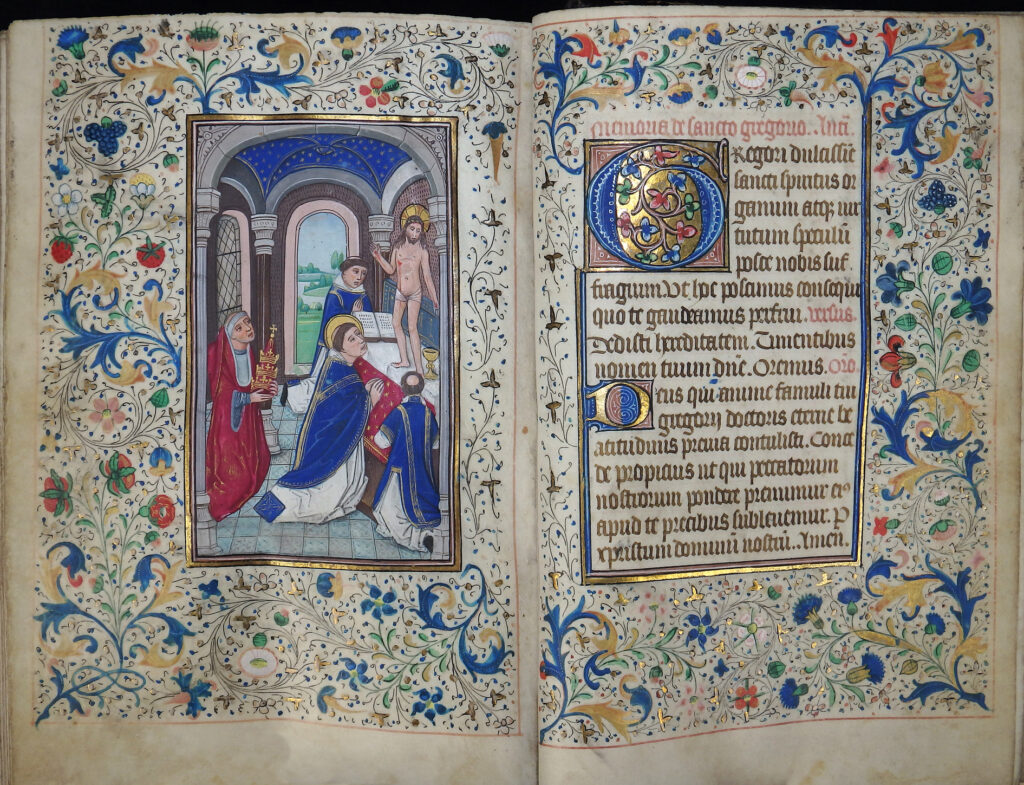 Memoria de sancto gregorio. Antˉ.
O Regori dulcissīe
sancti spiritus or
ganum atqȝ uir
tutum speculū
posce nobis suf
fragium. Ut hoc possimus consequi
quo te gaudeamus perfrui. versus.
Dedisti hereditatem. Timentibus
nomen tuum dnē. Oremus. Oro
Deus qui anime famuli tui
gregorij doctoris eterne be
atitudinis premia contulisti. Conce
de propicius ut qui peccatorum
nostrorum pondere premimur ei9
apud te precibus subleuemur. P
xpristum dominū nostrū. Amen.